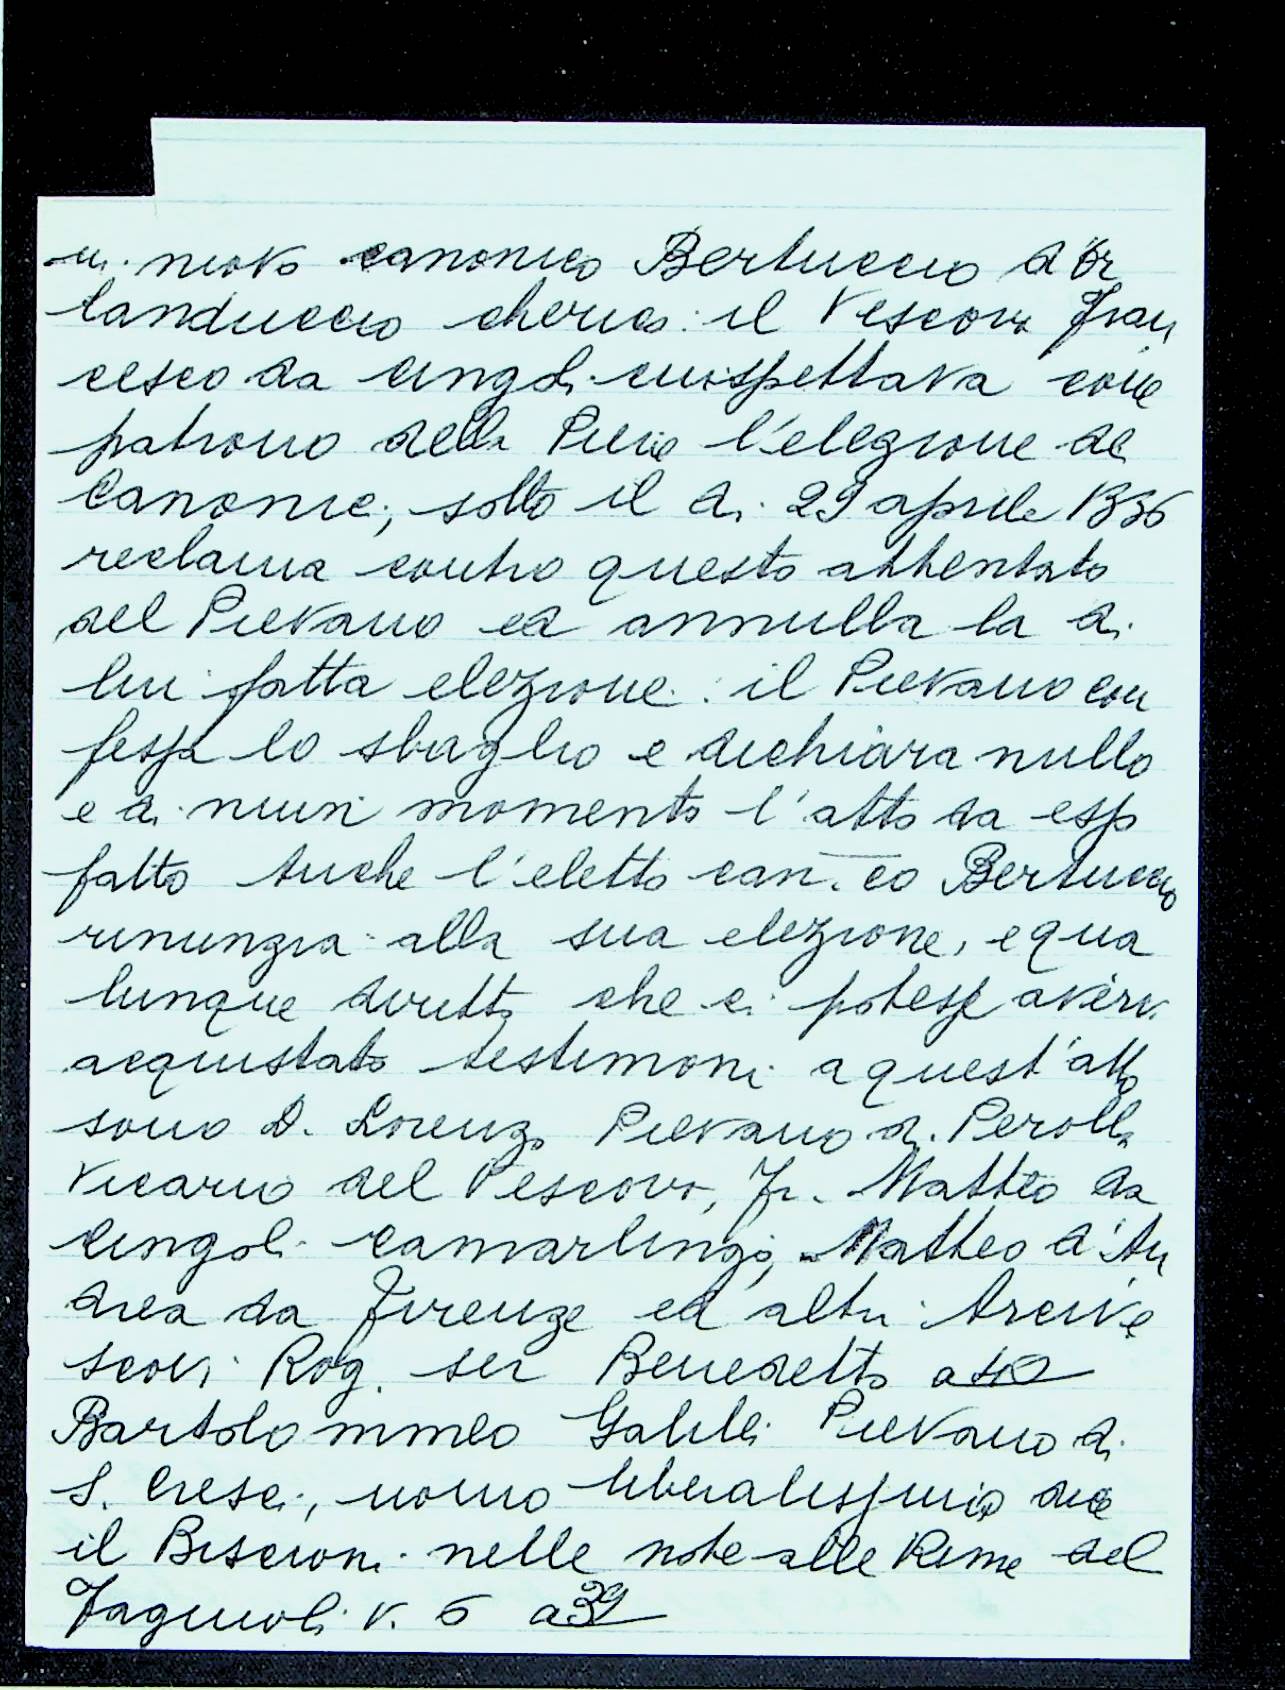 in nuovo canonico Bertuccio d'Or
landuccio cherico: il Vescovo Fran
cesco da Cingoli cui spettava come
patrono della Pieve l'elezione de
Canonici, sotto il dì 29 aprile 1336
reclama contro questo attentato
del Pievano ed annulla la di
lui fatta elezione: il Pievano con
fessa lo sbaglio e dichiara nullo
e di niun momento l'atto da esso
fatto Anche l'eletto can.co Bertuccio
rinunzia alla sua elezione, e qua
lunque diritto che ei potesse avervi
acquistato testimoni a quest'atto
sono D. Lorenzo Pievano di Perolla
Vicario del Vescovo, Fr. Matteo da
Cingoli Camarlingo, Matteo d'An
drea da Firenze ed altri Arcive
scovi Rog. ser Benedetto
Bartolommeo Galilei Pievano di
S. Cresci, uomo liberalissimo dice
il Biscioni nelle note alle Rime del
Fagiuoli v. 6 a 39